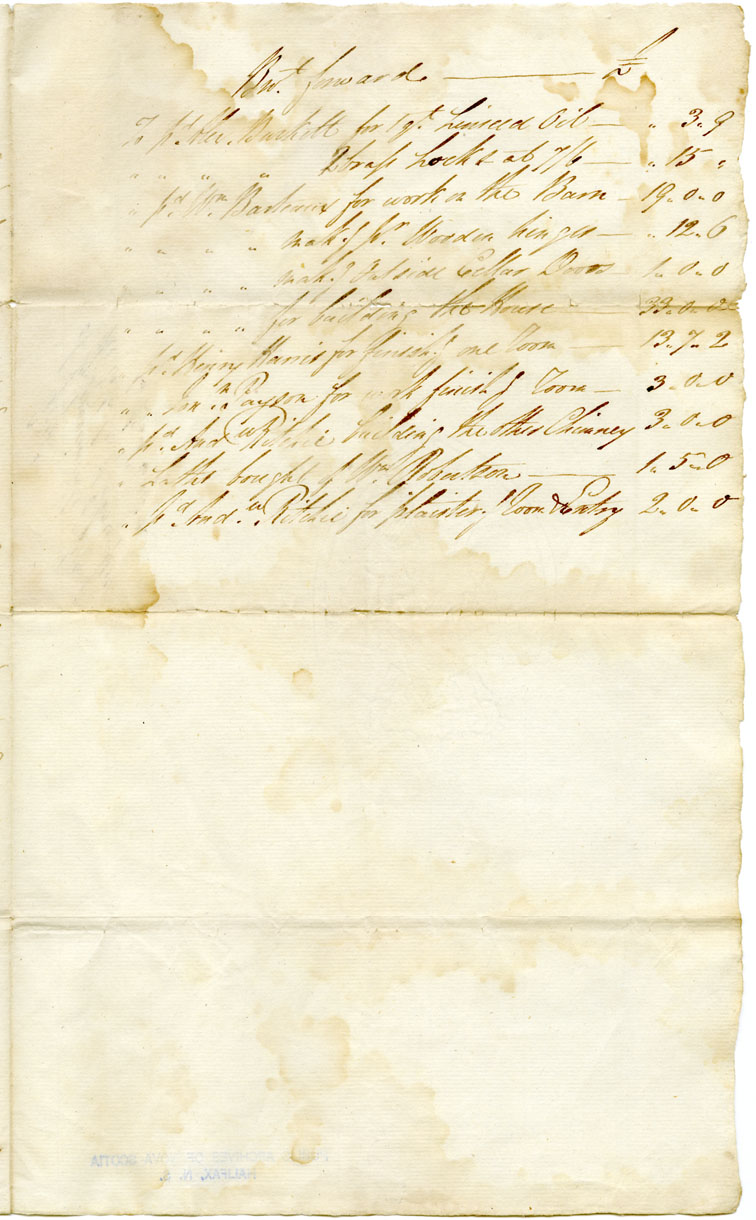 Brot. forward — £
To pd. Alex. Burkett for 1 qt. Linseed Oil — „ 3„ 9
„ „ „ „ 2 brass Locks at 7/6 — „ 15 „
„ pd. Wm for work on the Barn — 19„ 0„ 0
„ „ „ „ makg. pr. Wooden hinges — „ 12„ 6
„ „ „ „ makg. Outside Cellar Doors 1„ 0„ 0
„ „ „ „ for building the House — 33„ 0„ 0
„ pd. Henry Harris for finishg. one Room — 13„ 7„ 2
„ „ Payson for work finishg. Room — 3„ 0„ 0
„ pd. Andw. Ritchie building the other Chimney 3„ 0„ 0
„ Laths bought of Wm. Robertson — 1„ 5„ 0
„ pd. Andw. Ritchie for plaisterg. Room & Entry 2„ 0„ 0
ARCHIVES OF NOVA SCOTIA
HALIFAX, N. S.